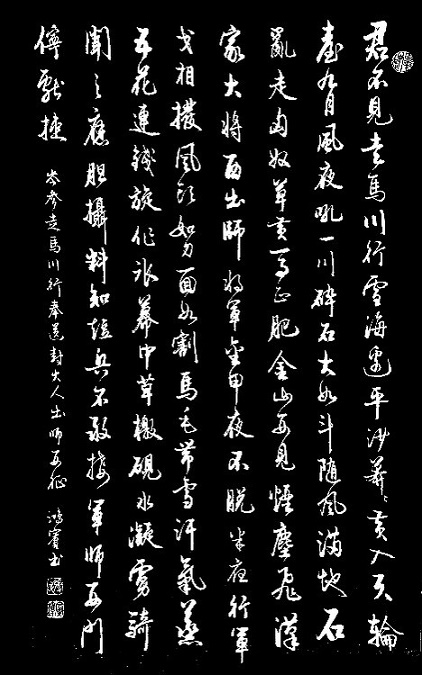 君不見走馬川行雪海邊平沙莽〻黃入天輪
臺九月風夜吼一川碎石大如斗隨風滿地石
亂走匈奴草黃馬正肥金山西見煙塵飛漢
家大將西出師將軍金甲夜不脫半夜行軍
戈相撥風頭如刀面如割馬毛帶雪汗氣蒸
五花連錢旋作冰幕中草檄硯水凝虜騎
聞之應膽攝料知短兵不敢接軍師西門
佇獻捷
岑參走馬川行奉送封大人出師西征 鴻賓書